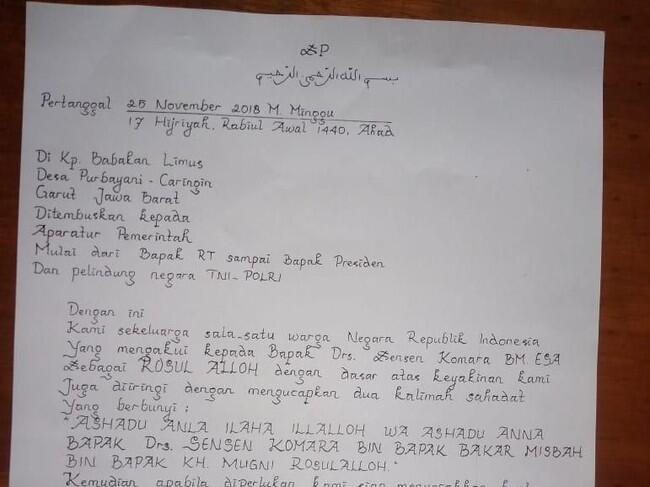 ƵP
بسم الله الرحمن الرحيم
Pertanggal 25 November 2018 M. Minggu
17 Hijriyah. Rabiul Awal 1440, Ahad
Di Kp. Babakan Limus
Desa Purbayani - Caringin
Garut Jawa Barat
Ditembuskan kepada
Aparatur Pemerintah
Mulai dari Bapak RT sampai Bapak Presiden
Dan pelindung negara TNI-POLRI
Dengan ini
Kami sekeluarga sala-satu warga Negara Republik Indonesia
Yang mengakui kepada Bapak Drs. Sensen Komara BM. ESA
Sebagai ROSUL ALLOH dengan dasar atas keyakinan kami
Juga diiringi dengan mengucapkan dua kalimah sahadat
Yang berbunyi :
"ASHADU ANLA ILAHA ILLALLOH WA ASHADU ANNA
BAPAK Drs. SENSEN KOMARA BIN BAPAK BAKAR MISBAH
BIN BAPAK KH. MUGNI ROSULALLOH."
Kemudian apabila diperlukan kami siap